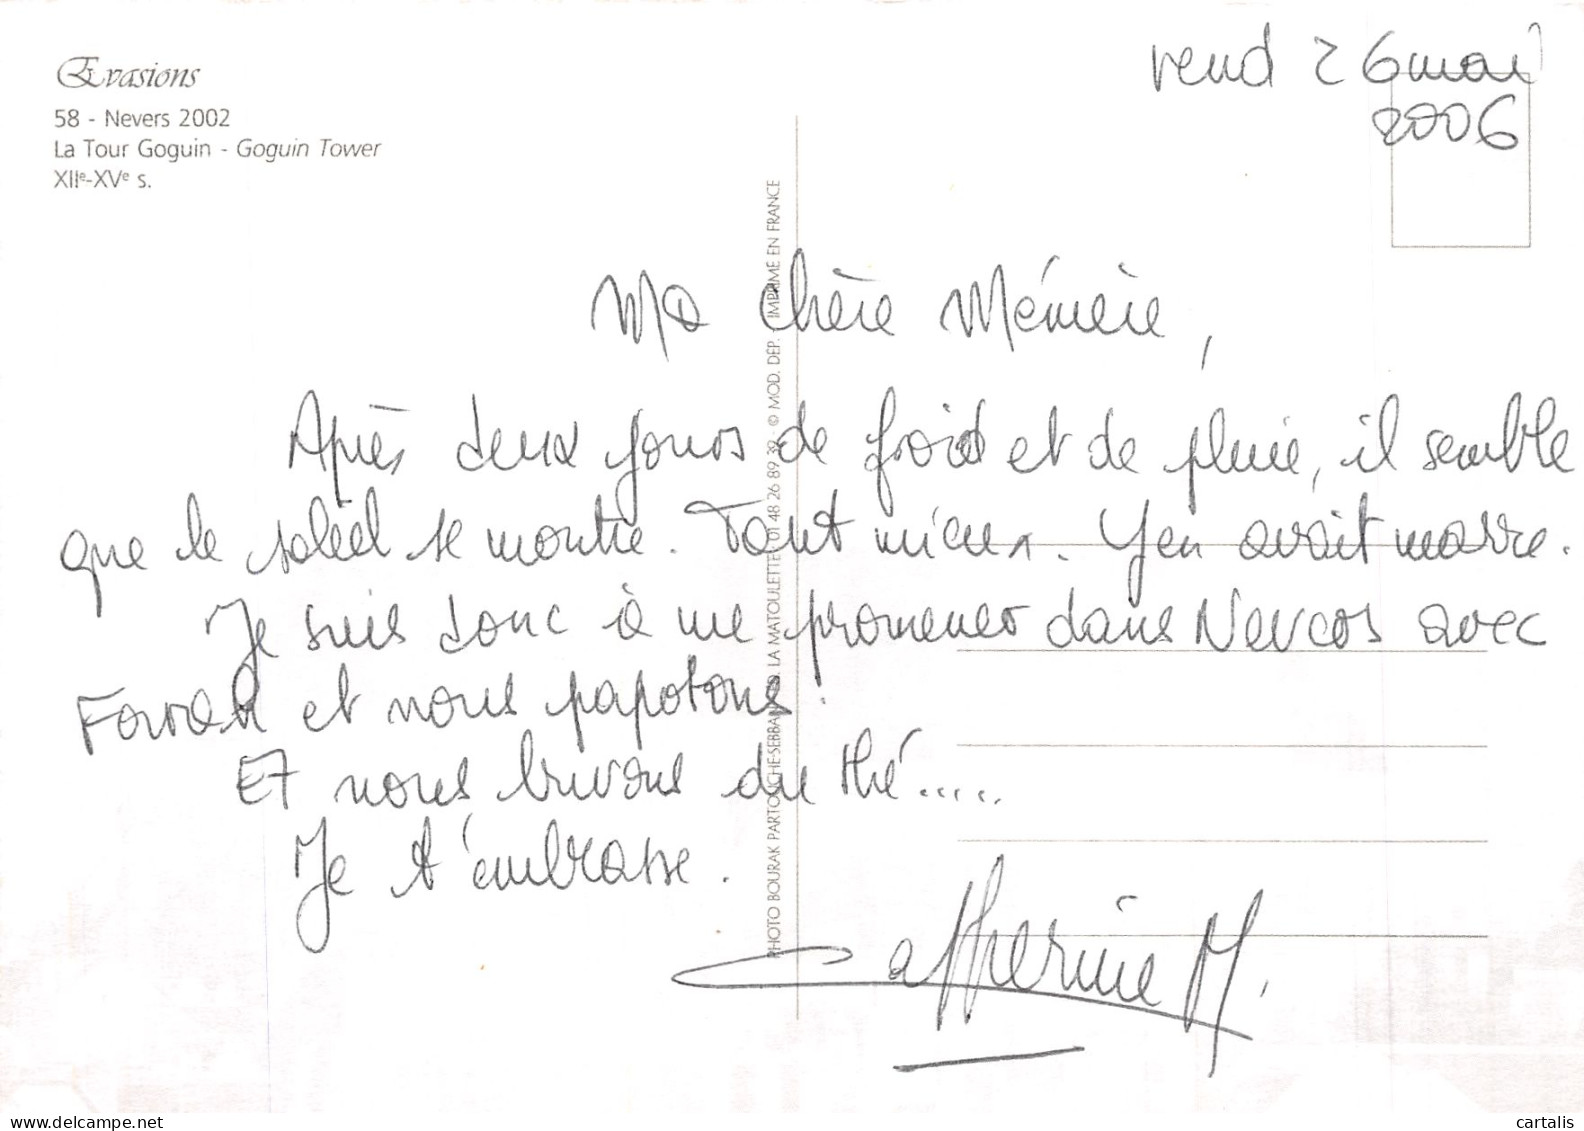 Evasions
58 - Nevers 2002
La Tour Goguin - Goguin Tower
XIIe-XVe s.
vend 26 mai
2006
PHOTO BOURAK PARTOUCHE-SEBBAN LA MATOULETTE 01 48 26 89 39 - © MOD. DEP. - IMPRIME EN FRANCE
Ma chère Mémère,
Après deux jours de froid et de pluie, il semble
que le soleil se montre. Tant mieux. Y'en avait marre.
Je suis donc à me promener dans avec
et nous papotons.
Et nous buvons du thé.....
Je t'embrasse.
Catherine M.
cartalis
www.delcampe.net